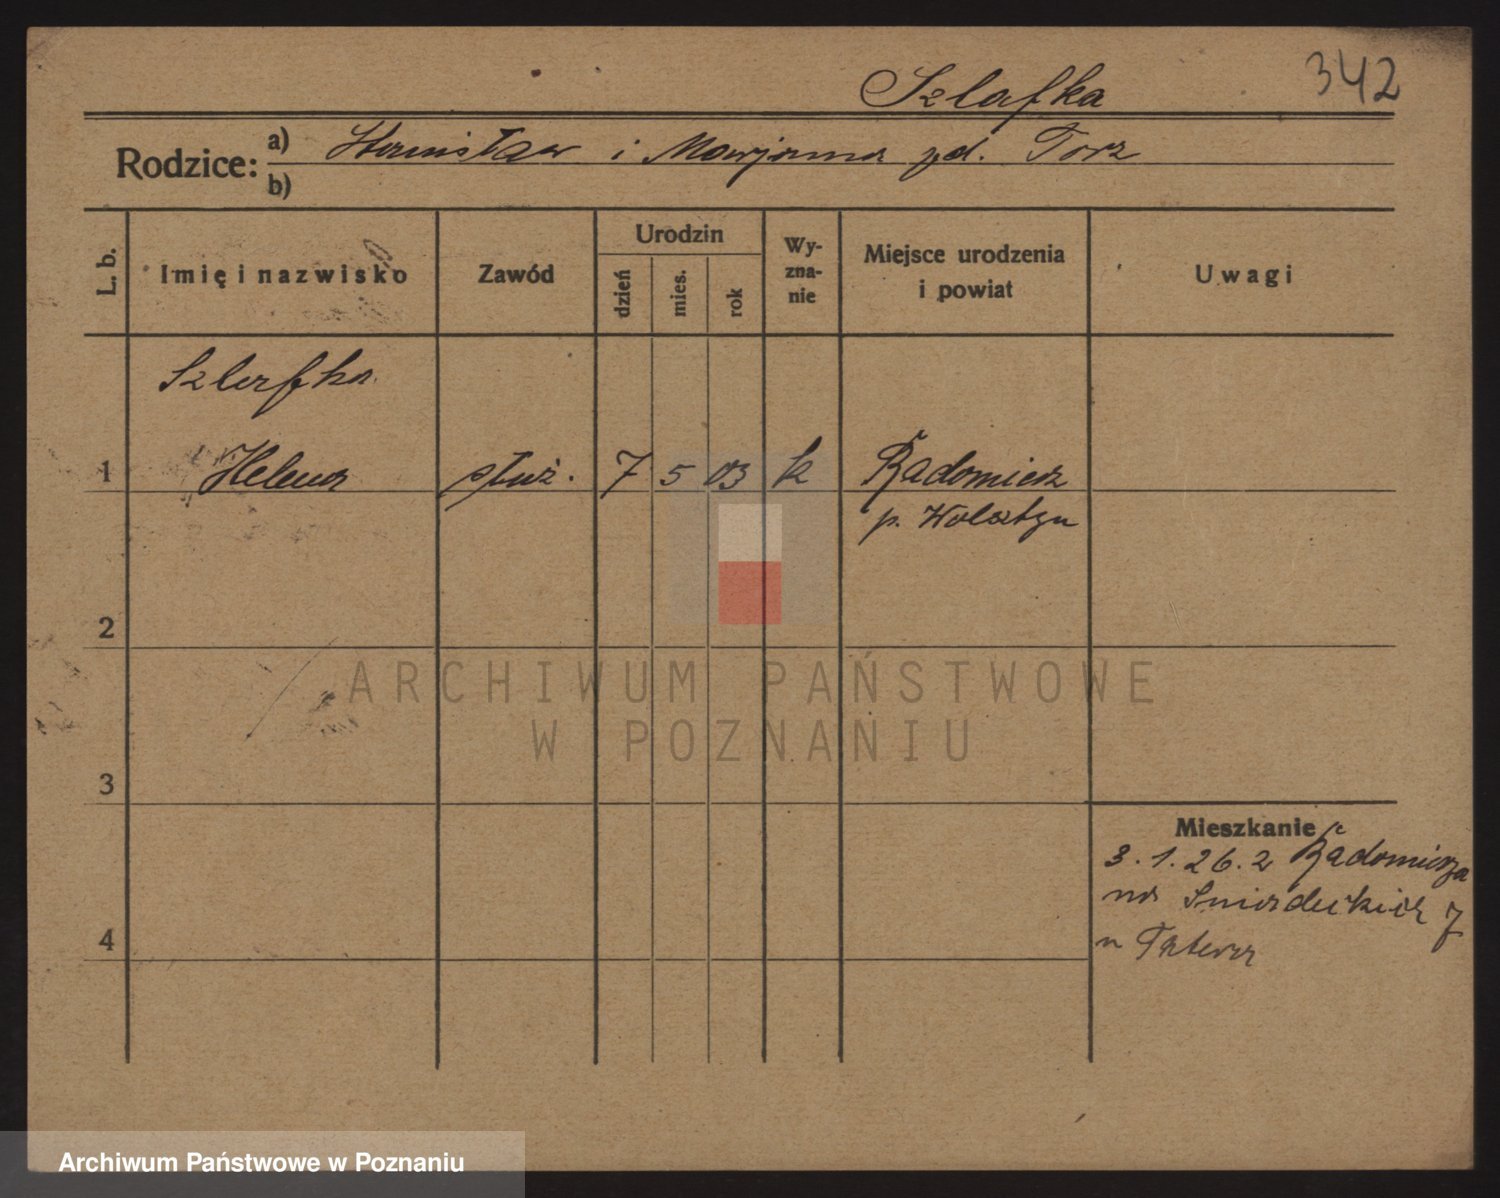 342
Szlafka
Rodzice: a) Stanisław i Marjanna zd. Torz
b)
L. b. Imię i nazwisko Zawód Urodzin dzień mies. rok Wyznanie Miejsce urodzenia i powiat Uwagi
Szlafka
1 Helena służ. 7 5 03 k Radomierz
p. Wolsztyn
2
3
4
Mieszkanie
3.1.26. z Radomierza
na Śniadeckich 7
u
ARCHIWUM PAŃSTWOWE
W POZNANIU
Archiwum Państwowe w Poznaniu